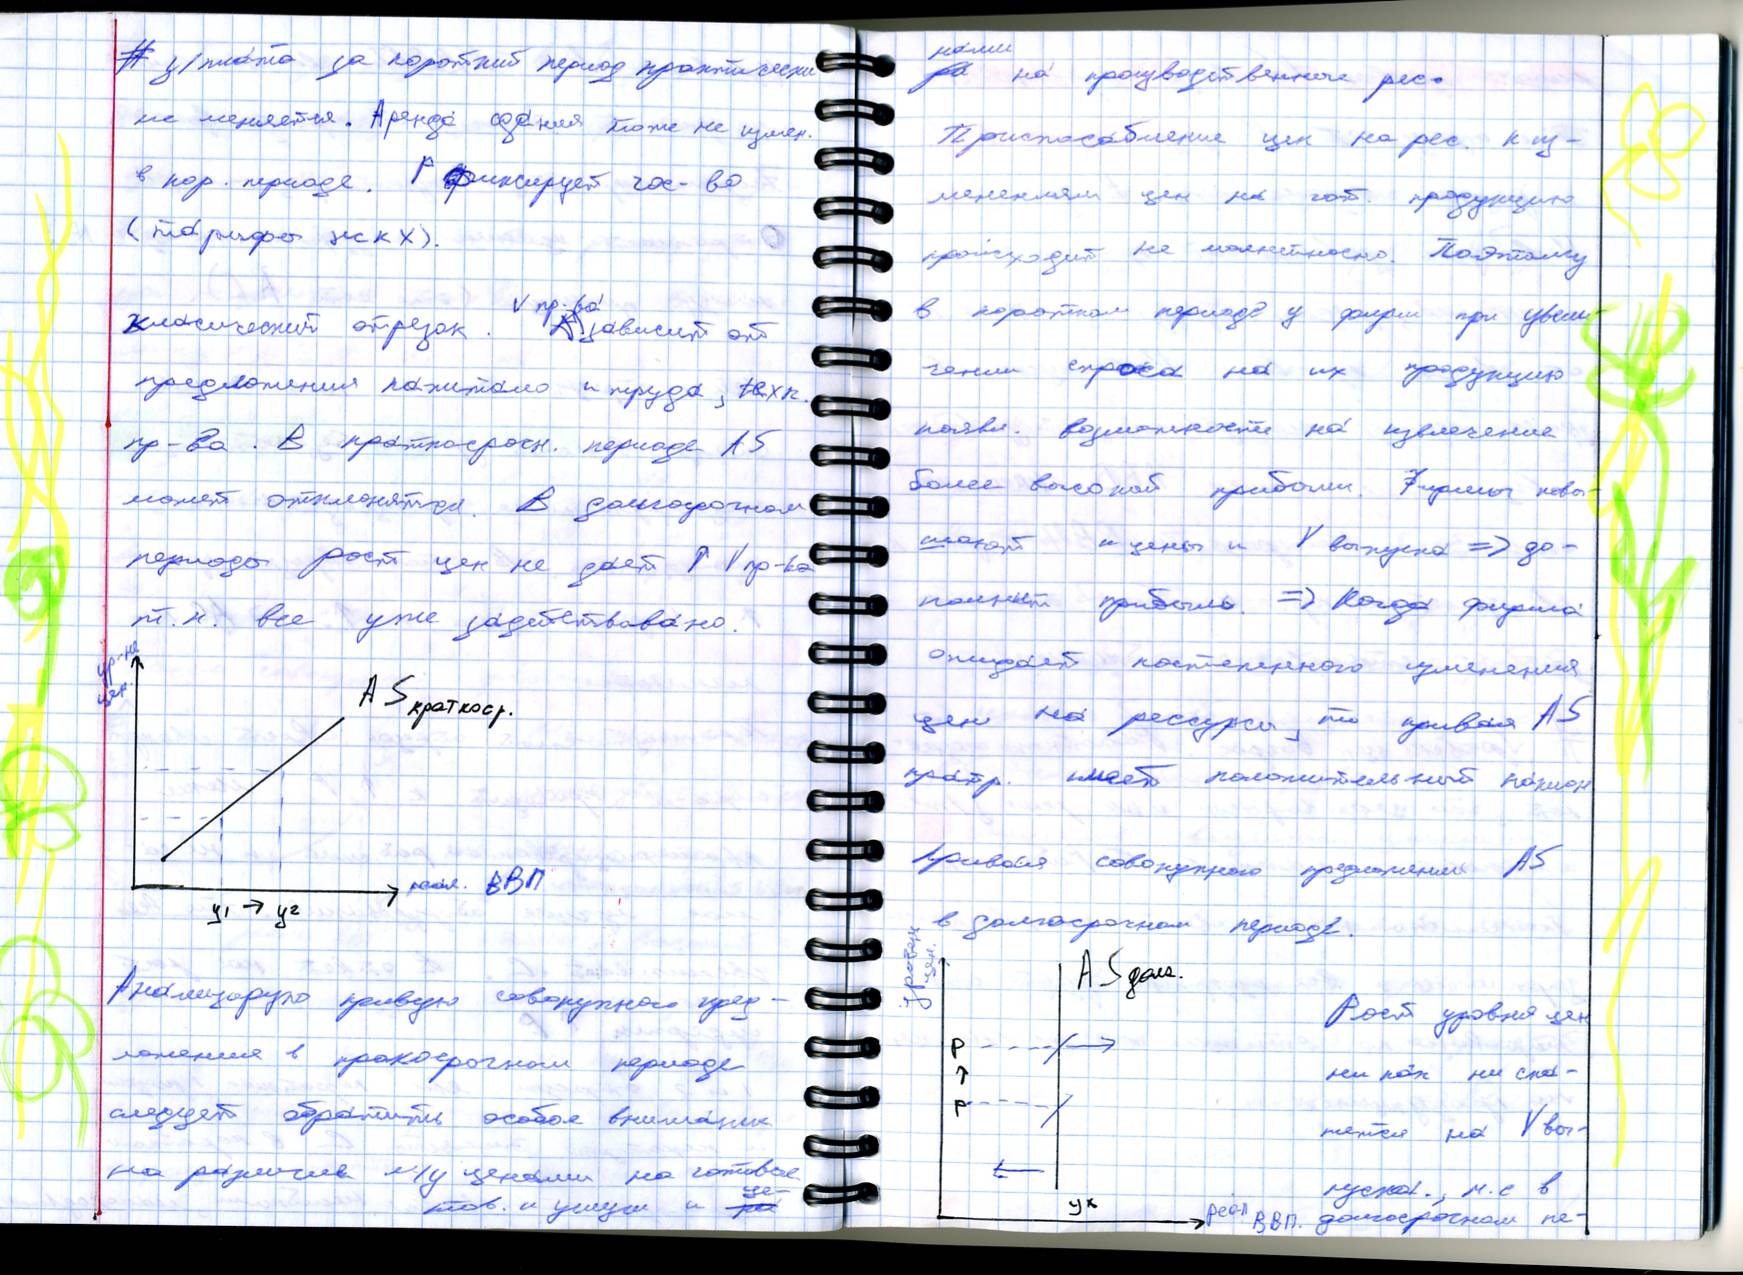 # з/плата за короткий период практически
не меняется. Аренда здания тоже не измен.
в кор. периоде. P фиксирует гос-во
(тарифы жскх).
V пр-ва
классический отрезок. зависит от
предложения капитала и труда, техн.
пр-ва. В краткосрочн. периоде AS
может отклоняться. В долгосрочном
периоды рост цен не дает ↑ V пр-ва
т.к. все уже задействовано.
ур-нь
цен.
AS краткоср.
реал. ВВП
y1 → y2
Анализируя кривую совокупного пред-
ложения в кракосрочном периоде
следует обратить особое внимание
на различие м/у ценами на готовые
тов. и услуги и це-
нами
на производственные рес.
Приспособление цен на рес. к из-
менениям цен на гот. продукцию
происходит не моментно. Поэтому
в коротком периоде у фирм при увели-
чении спроса на их продукцию
появл. возможности на извлечение
более высокой прибыли. Фирмы повы-
шают и цены и V выпуска => до-
полнит прибыль. => Когда фирма
ожидает постепенного изменения
цен на рессурсы, то кривая AS
кратр. имеет положительный наклон
Кривая совокупного предложения AS
в долгосрочном периоде.
уровень
цен.
AS долг.
P
↑
P
y*
реал ВВП.
Рост уровня цен
ни как не ска-
жется на V вы-
пуска., т.с в
долгосрочном пе-